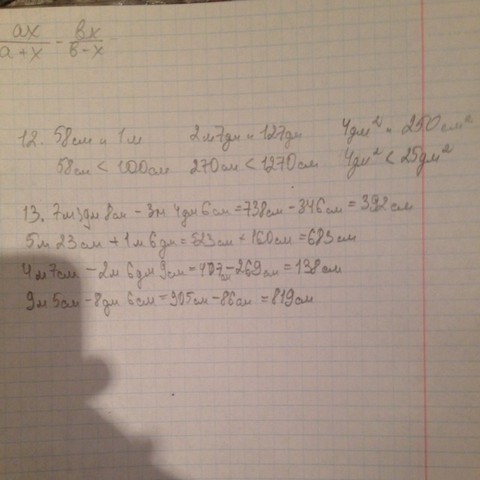 ax/a+x - вx/в-x
12. 58см и 1м 2м7дм и 127дм 4дм² и 250см²
58см < 100см 270см < 1270см 4дм² < 25дм²
13. 7м3дм 8см - 3м 4дм 6см = 738см - 346см = 392см
5м 23см + 1м 6дм = 523см + 160см = 683см
4м 7см - 2м 6дм 9см = 407см - 269см = 138см
9м 5см - 8дм 6см = 905см - 86см = 819см